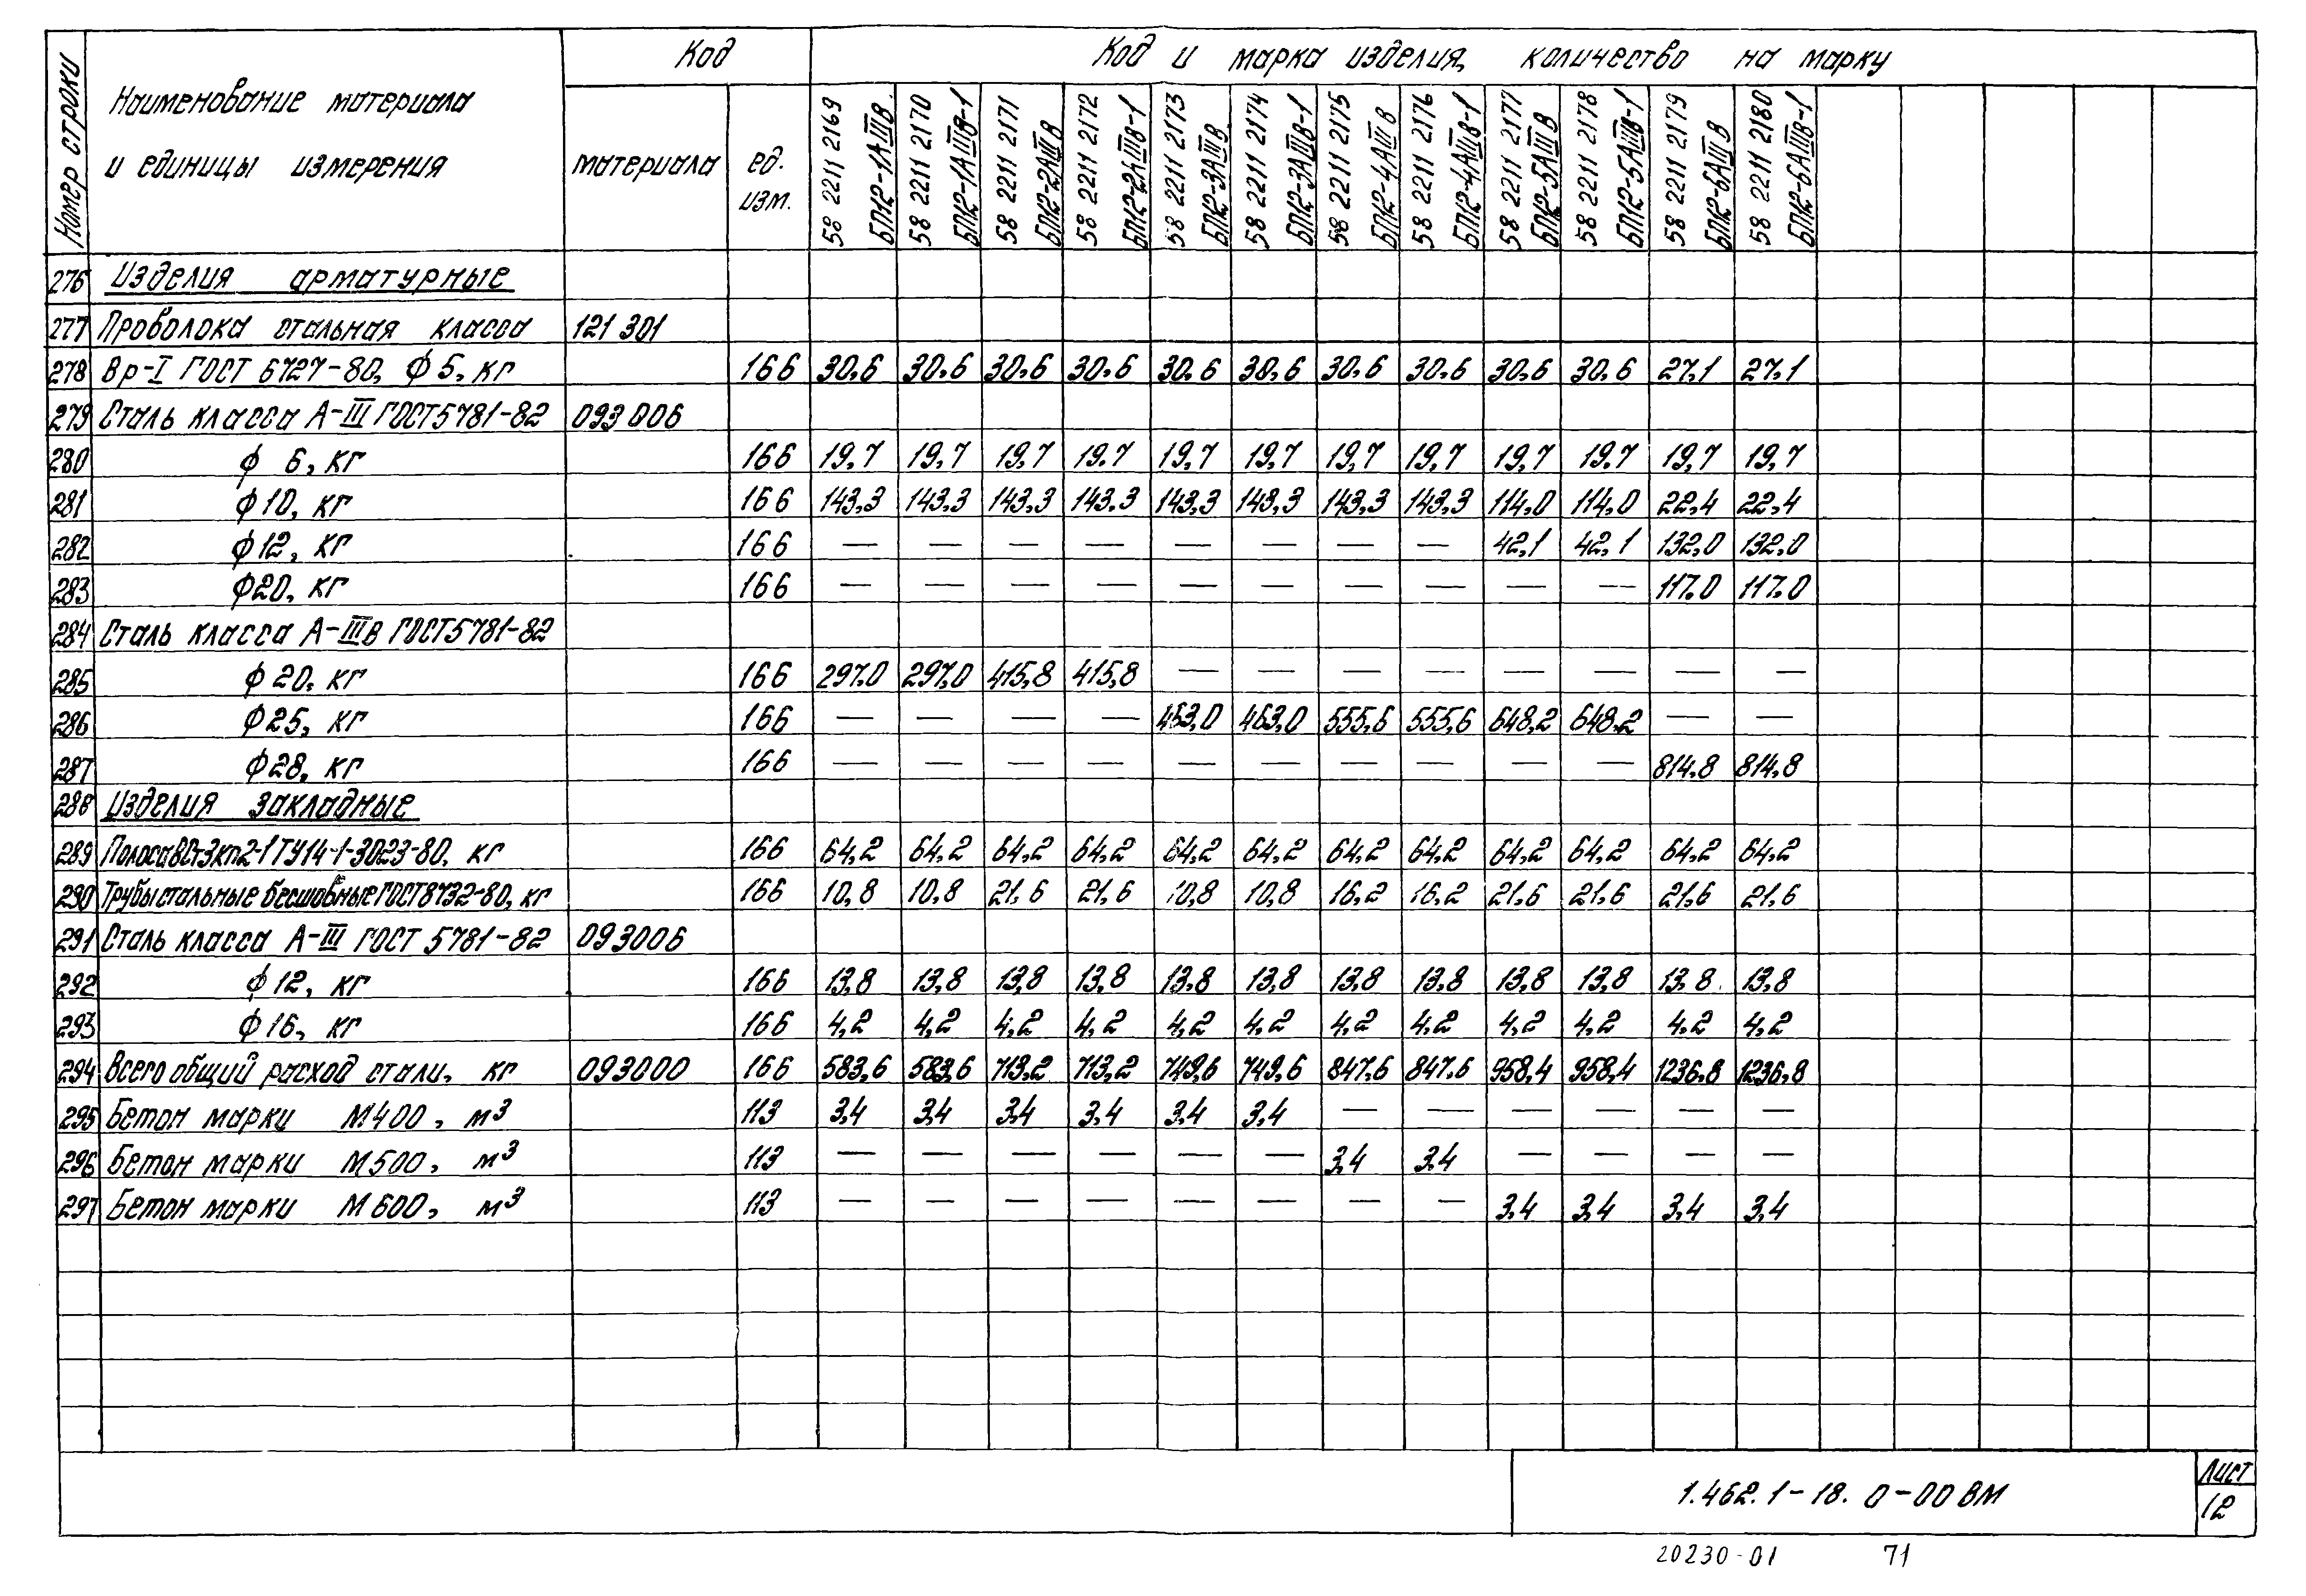 Номер строки
Наименование материала
и единицы измерения
Код
материала
ед.
изм.
Код и марка изделия, количество на марку
58 2211 2169 БП12-1АIIIв
58 2211 2170 БП12-1АIIIв-1
58 2211 2171 БП12-2АIIIв
58 2211 2172 БП12-2АIIIв-1
58 2211 2173 БП12-3АIIIв
58 2211 2174 БП12-3АIIIв-1
58 2211 2175 БП12-4АIIIв
58 2211 2176 БП12-4АIIIв-1
58 2211 2177 БП12-5АIIIв
58 2211 2178 БП12-5АIIIв-1
58 2211 2179 БП12-6АIIIв
58 2211 2180 БП12-6АIIIв-1
276 Изделия арматурные
277 Проволока стальная класса 121 301
278 Вр-I ГОСТ 6727-80, ф 5, кг 166 30,6 30,6 30,6 30,6 30,6 30,6 30,6 30,6 30,6 30,6 27,1 27,1
279 Сталь класса А-III ГОСТ5781-82 093 006
280 ф 6, кг 166 19,7 19,7 19,7 19,7 19,7 19,7 19,7 19,7 19,7 19,7 19,7 19,7
281 ф10, кг 166 143,3 143,3 143,3 143,3 143,3 143,3 143,3 143,3 114,0 114,0 22,4 22,4
282 ф12, кг 166 — — — — — — — — 42,1 42,1 132,0 132,0
283 ф20, кг 166 — — — — — — — — — — 117,0 117,0
284 Сталь класса А-IIIв ГОСТ5781-82
285 ф20, кг 166 297,0 297,0 415,8 415,8 — — — — — — — —
286 ф25, кг 166 — — — — 463,0 463,0 555,6 555,6 648,2 648,2 — —
287 ф28, кг 166 — — — — — — — — — — 814,8 814,8
288 Изделия закладные
289 Полоса ВСт3кп2-1 ТУ14-1-3023-80, кг 166 64,2 64,2 64,2 64,2 64,2 64,2 64,2 64,2 64,2 64,2 64,2 64,2
290 Трубы стальные бесшовные ГОСТ8732-80, кг 166 10,8 10,8 21,6 21,6 10,8 10,8 16,2 16,2 21,6 21,6 21,6 21,6
291 Сталь класса А-III ГОСТ 5781-82 093006
292 ф12, кг 166 13,8 13,8 13,8 13,8 13,8 13,8 13,8 13,8 13,8 13,8 13,8 13,8
293 ф16, кг 166 4,2 4,2 4,2 4,2 4,2 4,2 4,2 4,2 4,2 4,2 4,2 4,2
294 Всего общий расход стали, кг 093000 166 583,6 583,6 713,2 713,2 749,6 749,6 847,6 847,6 958,4 958,4 1236,8 1236,8
295 Бетон марки М400, м³ 113 3,4 3,4 3,4 3,4 3,4 3,4 — — — — — —
296 Бетон марки М500, м³ 113 — — — — — — 3,4 3,4 — — — —
297 Бетон марки М600, м³ 113 — — — — — — — — 3,4 3,4 3,4 3,4
1.462.1-18. 0-00 ВМ
Лист
12
20230-01 71